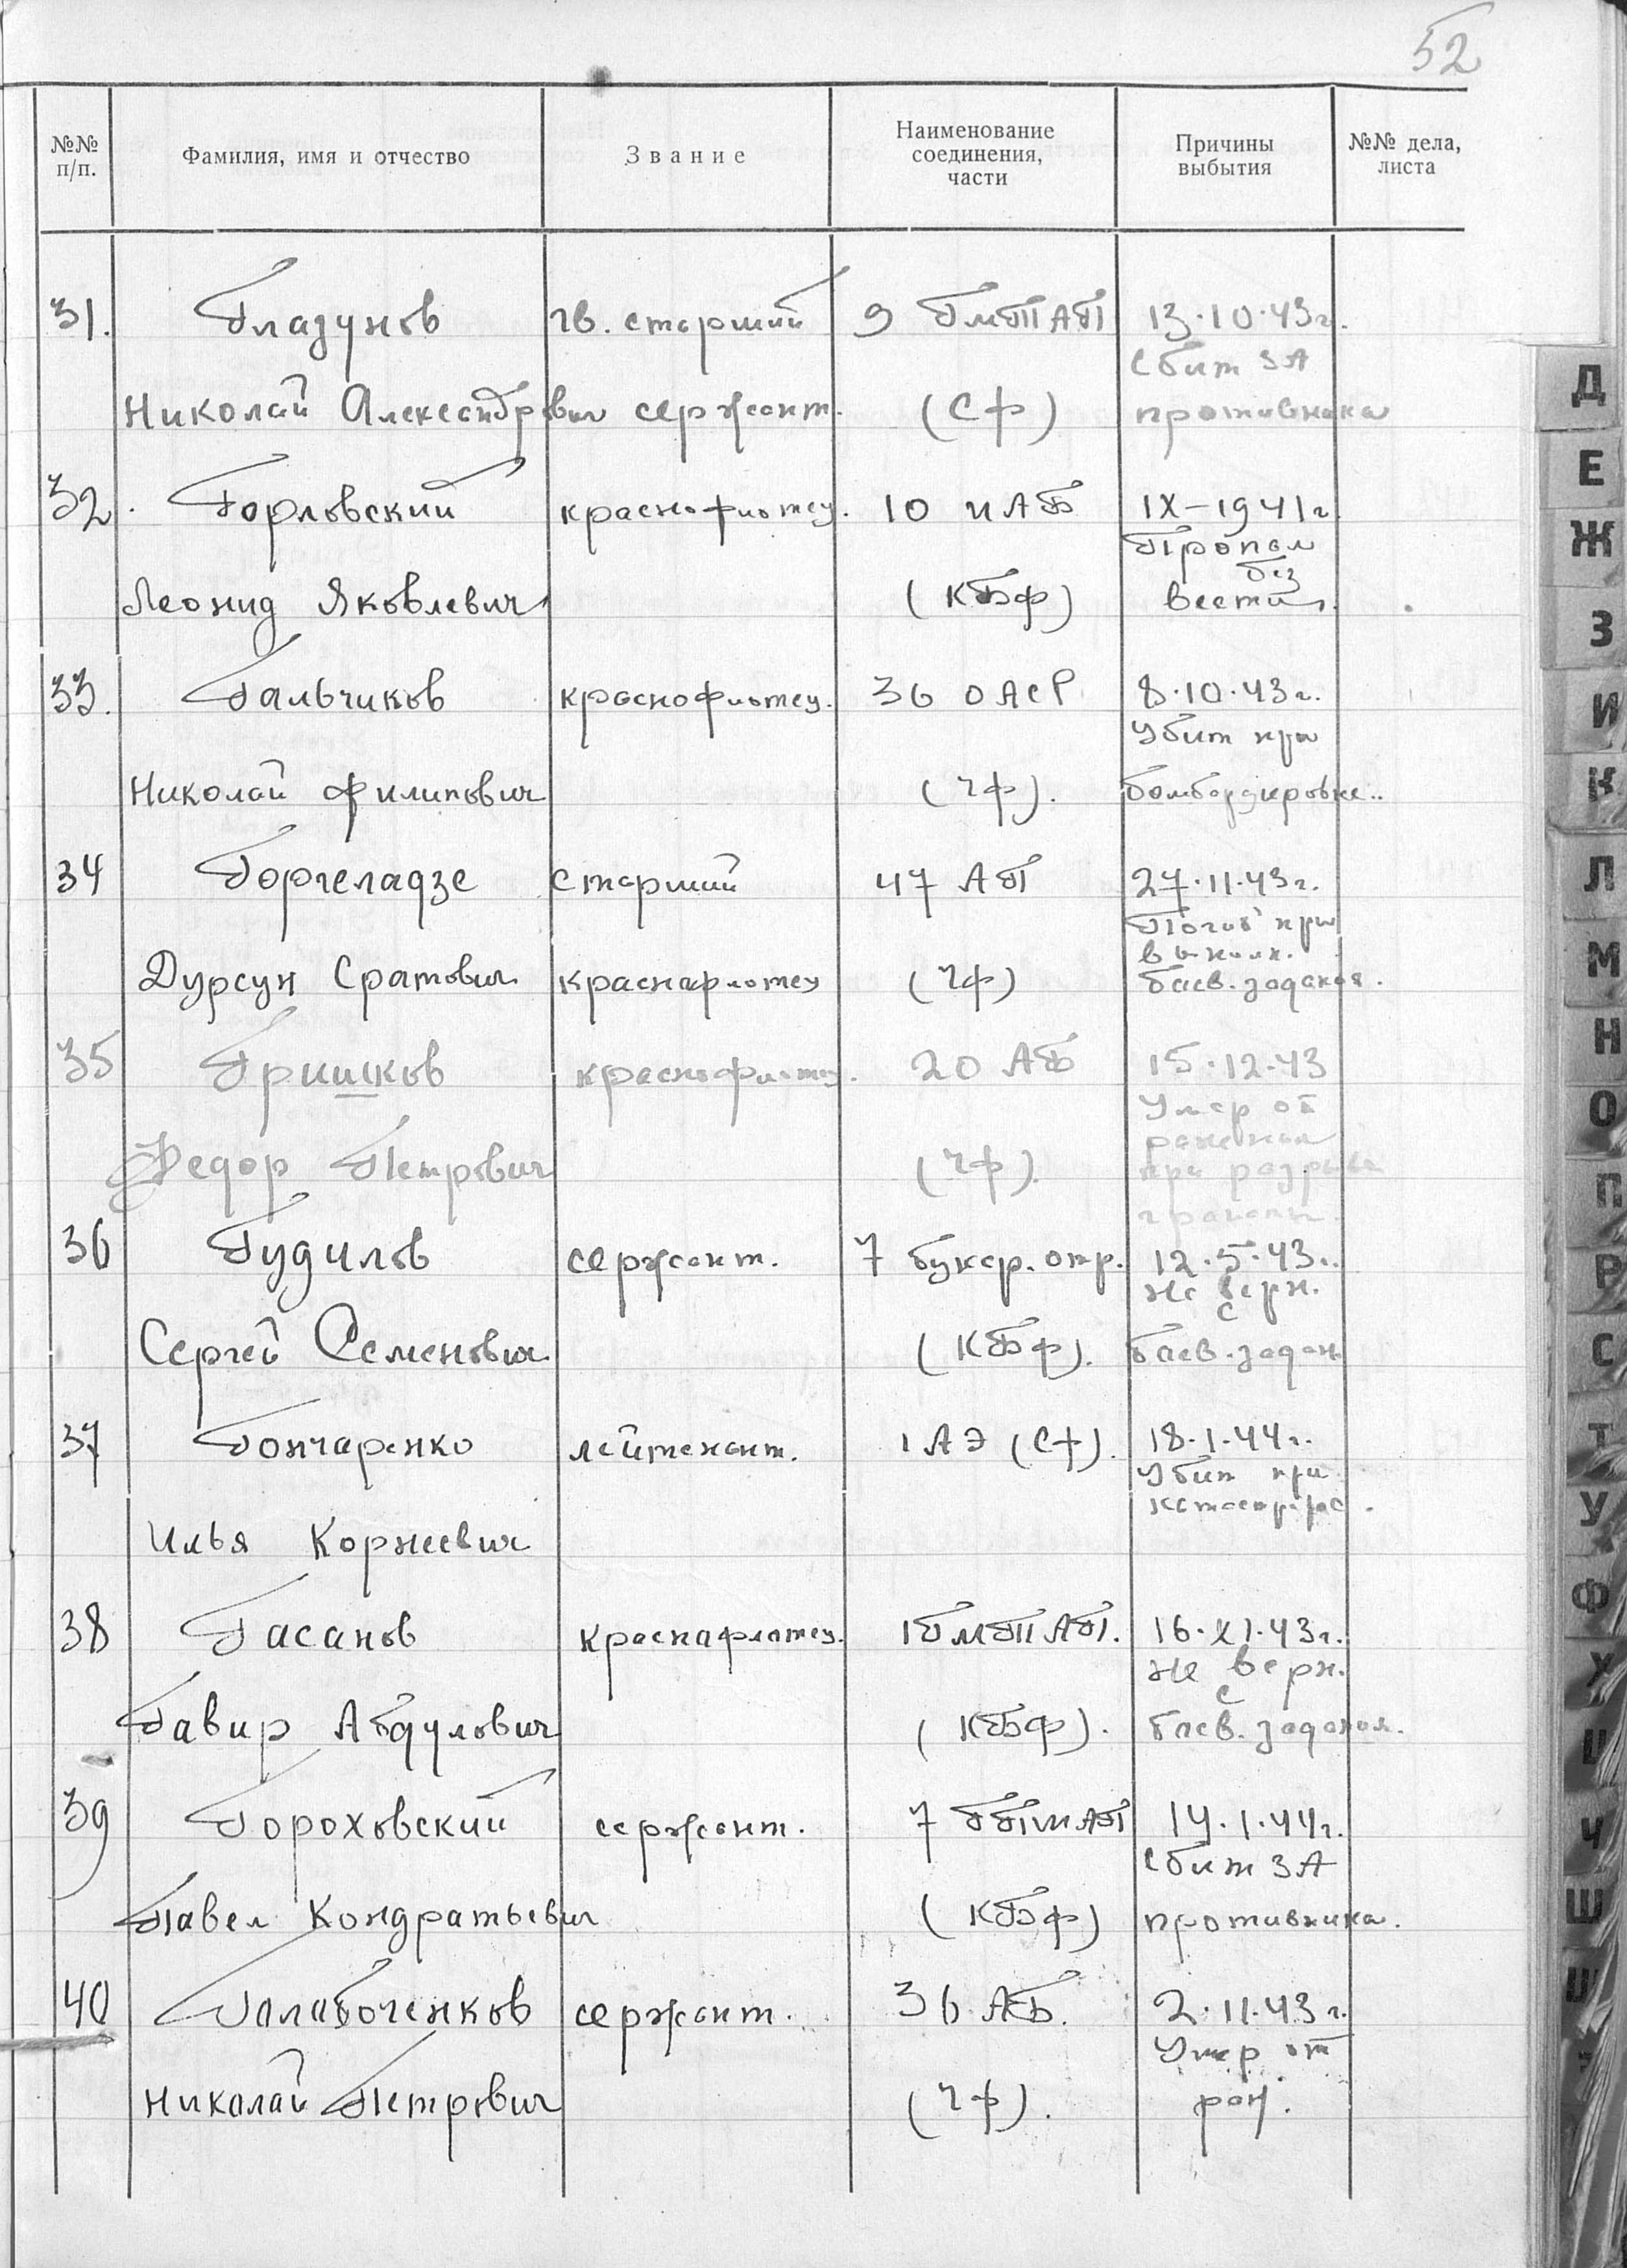 52
№№ п/п. Фамилия, имя и отчество Звание Наименование соединения, части Причины выбытия №№ дела, листа
31. Глазунов гв. старший 9 ГМТАП 13.10.43г.
Сбит ЗА
Николай Александрович сержант. (СФ) противника
32. Горловский краснофлотец. 10 ИАБ IX-1941г.
Пропал
без
Леонид Яковлевич (КБФ) вести.
33. Гальчиков краснофлотец. 36 ОАСР 8.10.43г.
Убит при
Николай Филипович (ЧФ). бомбардировке..
34 Горгеладзе старший 47 АП 27.11.43г.
Погиб при
выполн.
Дурсун Сратович краснафлотец (ЧФ) боев. задания.
35 Гришков краснофлотец. 20 АБ 15.12.43
Умер от
ранения
Федор Петрович (ЧФ). при разрыве
гранаты.
36 Гудилов сержант. 7 букср. отр. 12.5.43г.
Не верн.
с
Сергей Семенович (КБФ). боев. задан.
37 Гончаренко лейтенант. 1 АЭ (СФ). 18.1.44г.
Убит при
катастрофе.
Илья Корнеевич
38 Гасанов краснафлотец. 1ГМТАП. 16.XI.43г.
Не верн.
с
Гавир Абдулович (КБФ). боев. задания.
39 Гороховский сержант. 7 ГПШАП 14.1.44г.
Сбит ЗА
Павел Кондратьевич (КБФ) противника.
40 Галабоченков сержант. 36 АБ. 2.11.43г.
Умер от
Николай Петрович (ЧФ). ран.
Д
Е
Ж
З
И
К
Л
М
Н
О
П
Р
С
Т
У
Ф
Х
Ц
Ч
Ш